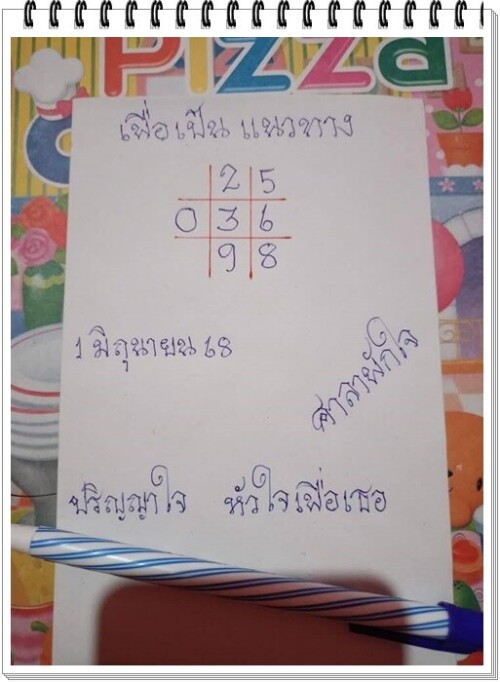 PIZZa
เพื่อเป็น แนวทาง
2 5
0 3 6
9 8
1 มิถุนายน 68
ศาลาพักใจ
ปริญญาใจ หัวใจเพื่อเธอ